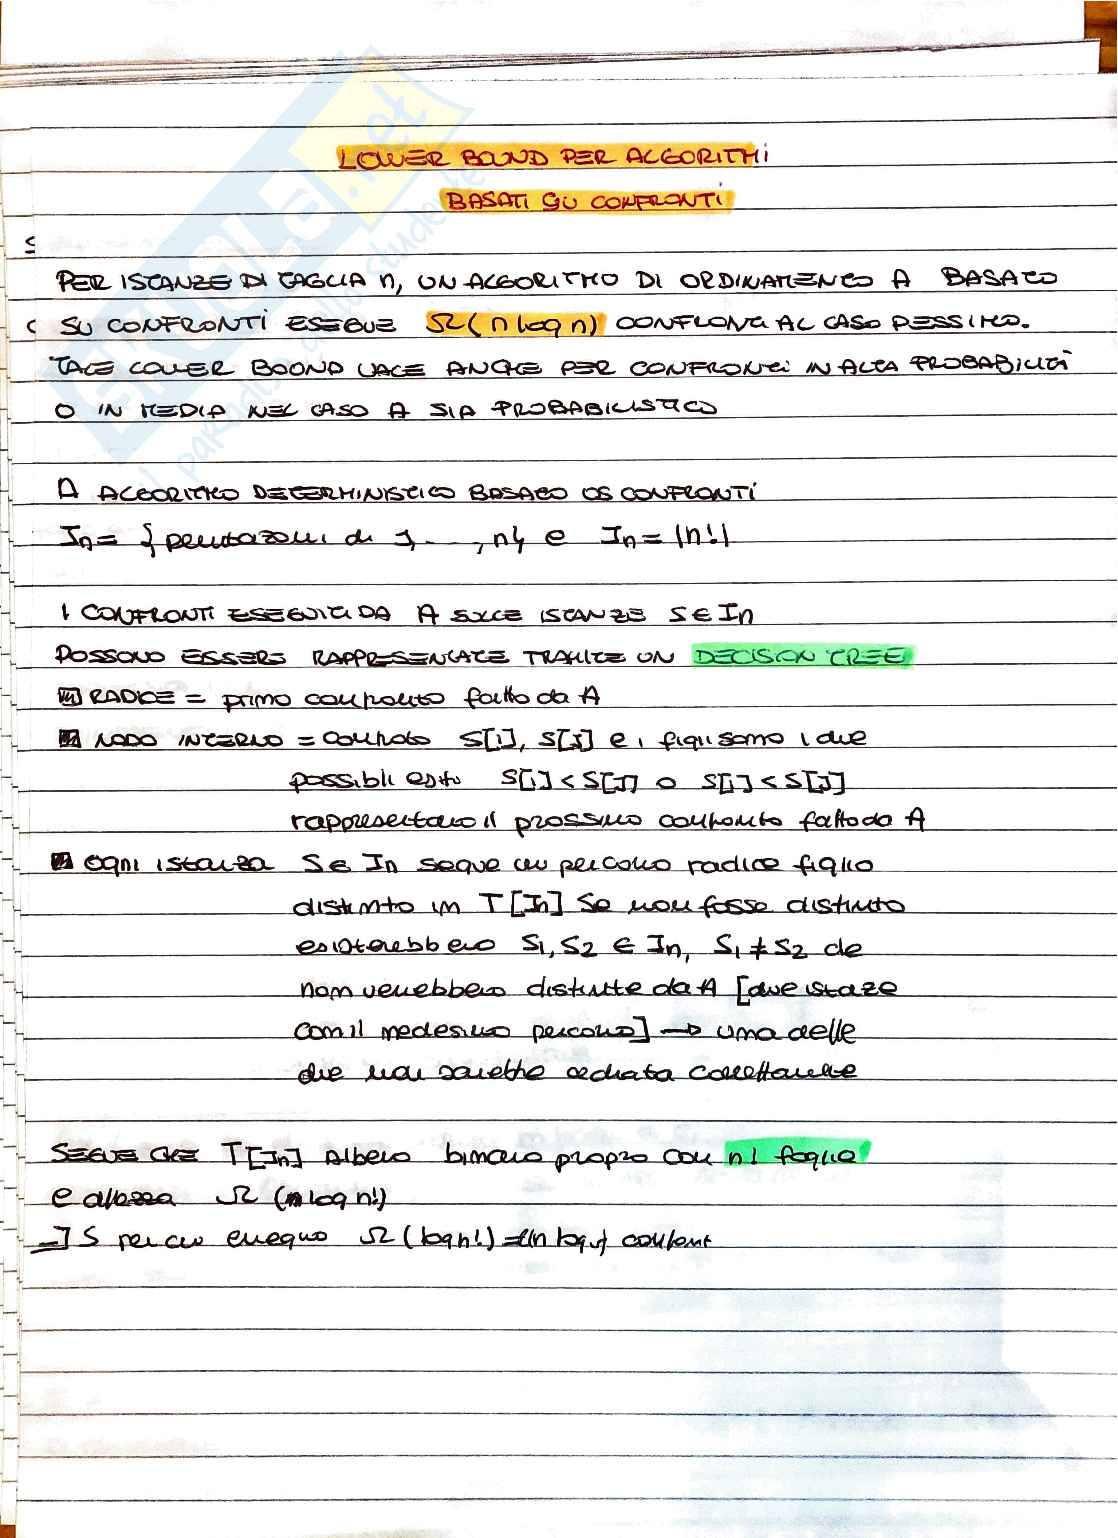 LOWER BOUND PER ALGORITMI
BASATI SU CONFRONTI
PER ISTANZE DI TAGLIA n, UN ALGORITMO DI ORDINAMENTO A BASATO
SU CONFRONTI ESEGUE Ω(n log n) CONFRONTI AL CASO PESSIMO.
TALE LOWER BOUND VALE ANCHE PER CONFRONTI IN ALTA PROBABILITÀ
O IN MEDIA NEL CASO A SIA PROBABILISTICO
A ALGORITMO DETERMINISTICO BASATO CONFRONTI
In = { permutazioni di 1, ..., n} e In = |n!|
I CONFRONTI ESEGUITI DA A SULLE ISTANZE S ∈ In
POSSONO ESSERE RAPPRESENTATE TRAMITE UN DECISION TREE
RADICE = primo confronto fatto da A
NODO INTERNO = confronto S[i], S[j] e i figli sono i due
possibli esito S[i] < S[j] o S[i] < S[j]
rappresentano il prossimo confronto fatto da A
Ogni istanza S ∈ In segue un percorso radice figlio
distinto in T[In] Se non fosse distinto
esisterebbero S1, S2 ∈ In, S1 ≠ S2 che
non verrebbero distinte da A [due istaze
con il medesimo percorso] → una delle
due non sarebbe ordinata correttamente
SEGUE CHE T[In] Albero binario proprio con n! foglie
e altezza Ω (log n!)
S per cui eseguo Ω (log n!) = (n log n) confront
skuola.net
il paradiso dello studente